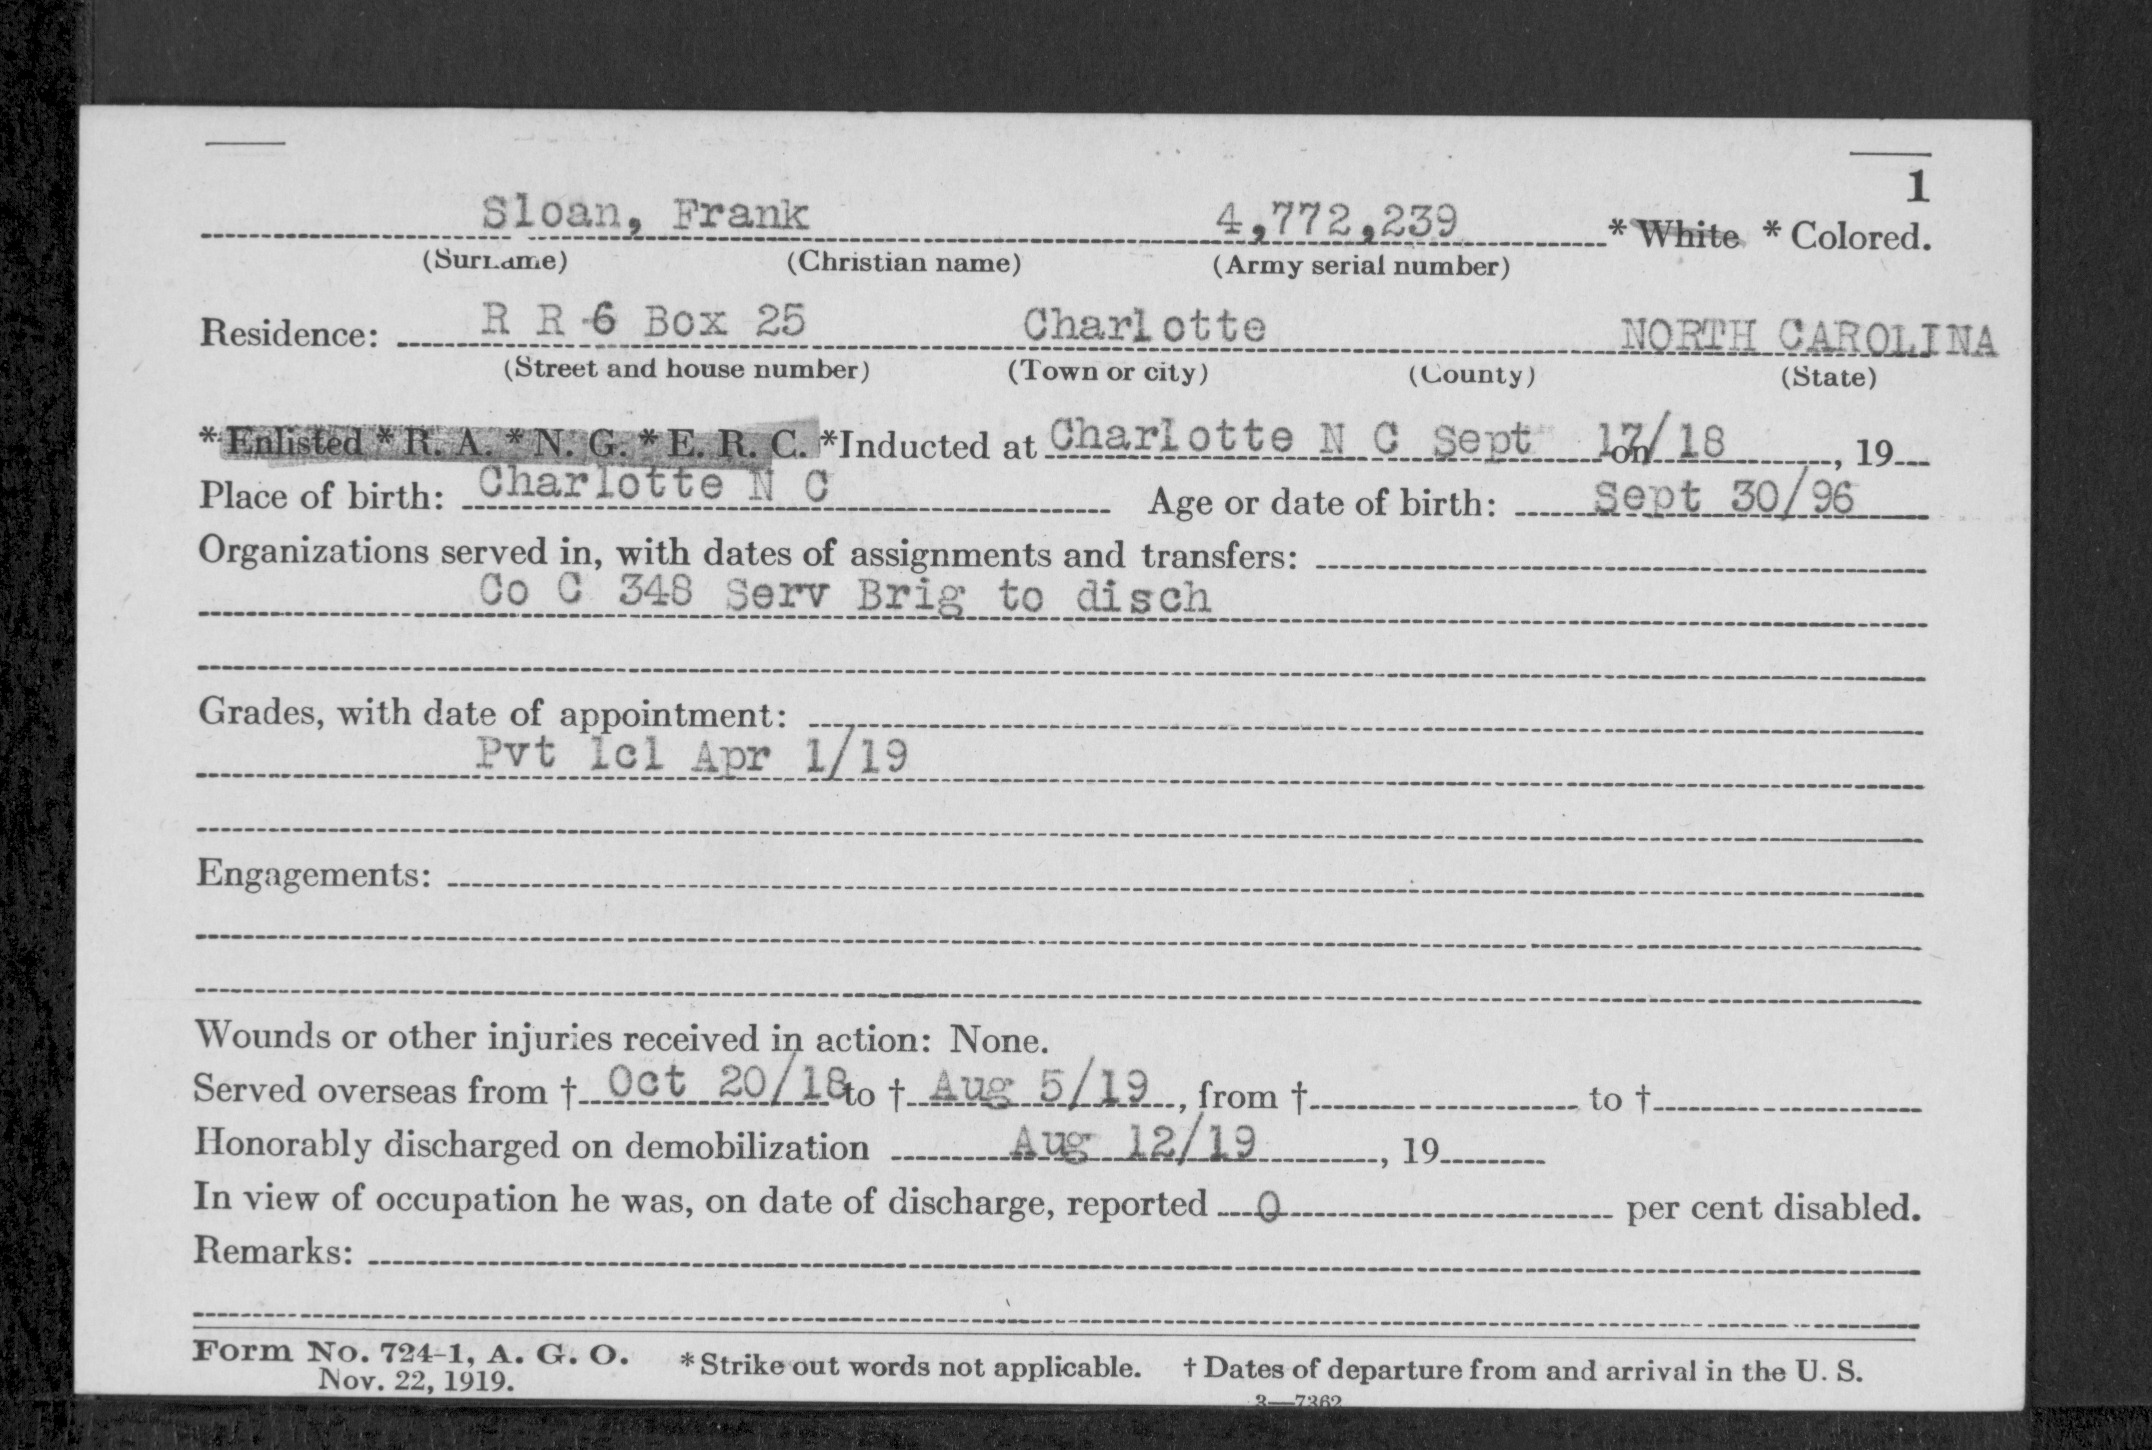 1
Sloan, Frank 4,772,239 * White * Colored.
(Surname) (Christian name) (Army serial number)
Residence: R R 6 Box 25 Charlotte NORTH CAROLINA
(Street and house number) (Town or city) (County) (State)
* Enlisted * R. A. * N. G. * E. R. C. * Inducted at Charlotte N C Sept 17/18 on , 19
Place of birth: Charlotte N C Age or date of birth: Sept 30/96
Organizations served in, with dates of assignments and transfers:
Co C 348 Serv Brig to disch
Grades, with date of appointment:
Pvt 1cl Apr 1/19
Engagements:
Wounds or other injuries received in action: None.
Served overseas from † Oct 20/18 to † Aug 5/19, from † to †
Honorably discharged on demobilization Aug 12/19, 19
In view of occupation he was, on date of discharge, reported 0 per cent disabled.
Remarks:
Form No. 724-1, A. G. O. * Strike out words not applicable. † Dates of departure from and arrival in the U. S.
Nov. 22, 1919.
3—7362